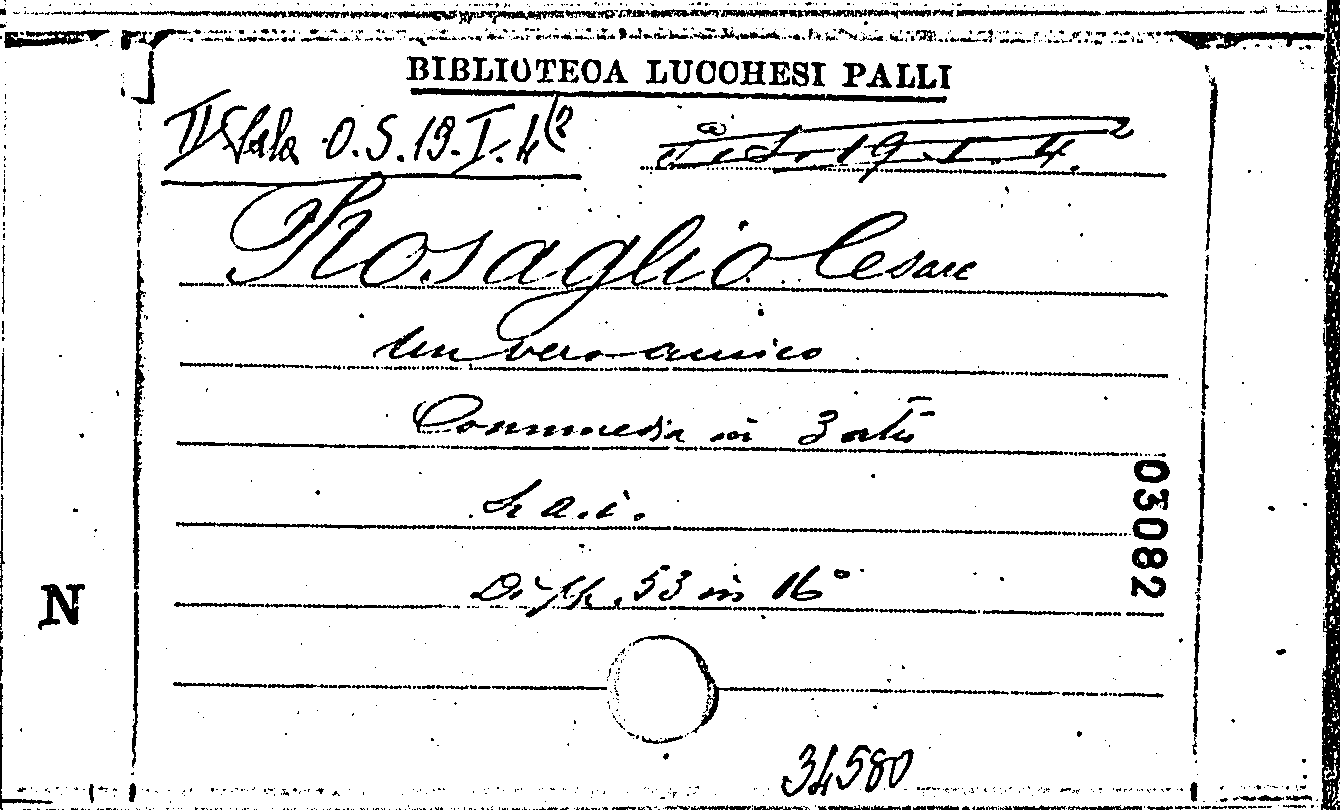 BIBLIOTECA LUCCHESI PALLI
II Sala O.S.19.I.4(2
19.I.4.
Rosaglio Cesare
Un vero amico
Commedia in 3 atti
S. a. i.
Di pp. 53 in 16°
03082
N
34580